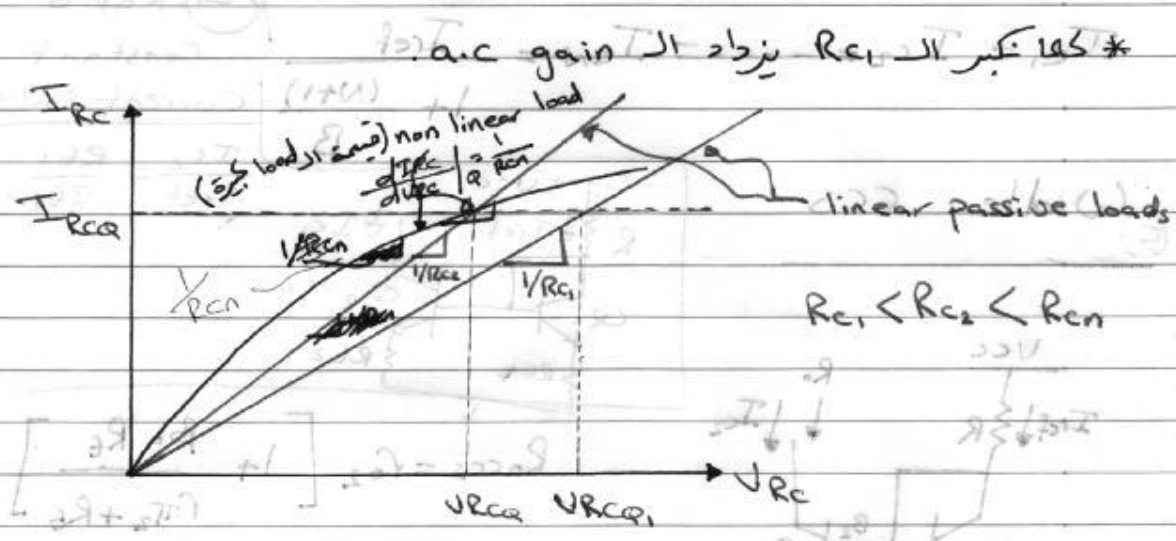 * كلما نكبر الـ Rc₁ يزداد الـ a.c gain.
I_RC
non linear load (قيمة الـ load كبيرة)
dI_RC/dV_RC |_Q = 1/Rcn
I_RCQ
linear passive loads
1/Rcn
1/Rc₂
1/Rc₁
1/Rcn
Rc₁ < Rc₂ < Rcn
V_RC
V_RCQ V_RCQ₁